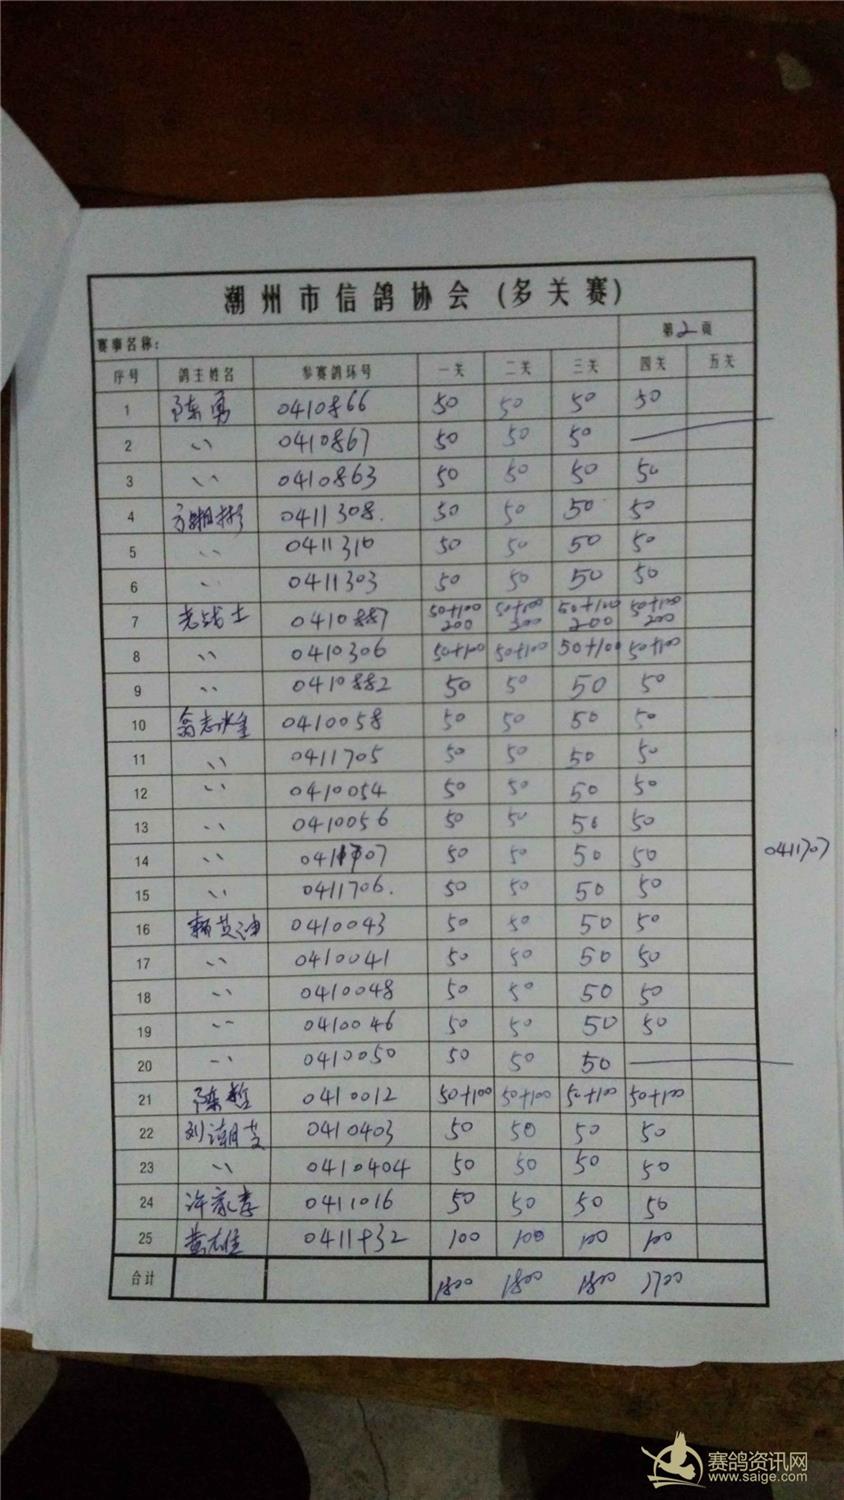 潮州市信鸽协会(多关赛)
赛事名称: 第2页
序号 鸽主姓名 参赛鸽环号 一关 二关 三关 四关 五关
1 陈勇 0410866 50 50 50 50
2 〃 0410867 50 50 50 —
3 〃 0410863 50 50 50 50
4 0411308. 50 50 50 50
5 〃 0411310 50 50 50 50
6 〃 0411303 50 50 50 50
7 老战士 0410887 50+100 200 50+100 200 50+100 200 50+100 200
8 〃 0410306 50+100 50+100 50+100 50+100
9 〃 0410882 50 50 50 50
10 0410058 50 50 50 50
11 〃 0411705 50 50 50 50
12 〃 0410054 50 50 50 50
13 〃 0410056 50 50 50 50
14 〃 0411707 50 50 50 50 0411707
15 〃 0411706. 50 50 50 50
16 0410043 50 50 50 50
17 〃 0410041 50 50 50 50
18 〃 0410048 50 50 50 50
19 〃 0410046 50 50 50 50
20 〃 0410050 50 50 50 —
21 陈哲 0410012 50+100 50+100 50+100 50+100
22 0410403 50 50 50 50
23 〃 0410404 50 50 50 50
24 许家春 0411016 50 50 50 50
25 黄雄佳 100 100 100 100
合计 1800 1800 1800 1700
赛鸽资讯网
www.saige.com